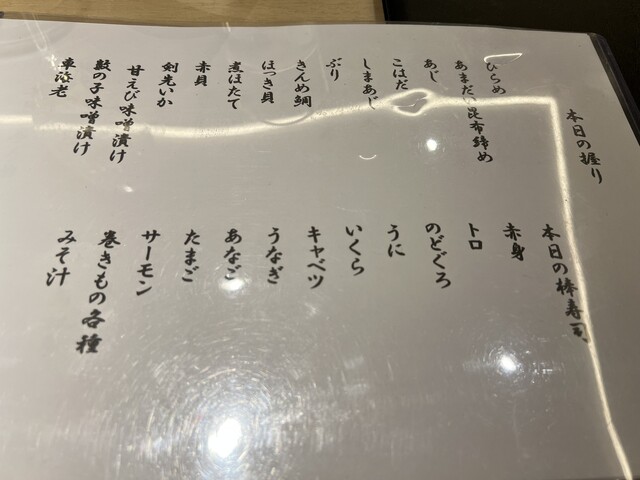 本日の握り
ひらめ
あまだい昆布締め
あじ
こはだ
しまあじ
ぶり
きんめ鯛
ほっき貝
煮ほたて
赤貝
剣先いか
甘えび味噌漬け
数の子味噌漬け
車海老
本日の棒寿司
赤身
トロ
のどぐろ
うに
いくら
キャベツ
うなぎ
あなご
たまご
サーモン
巻きもの各種
みそ汁